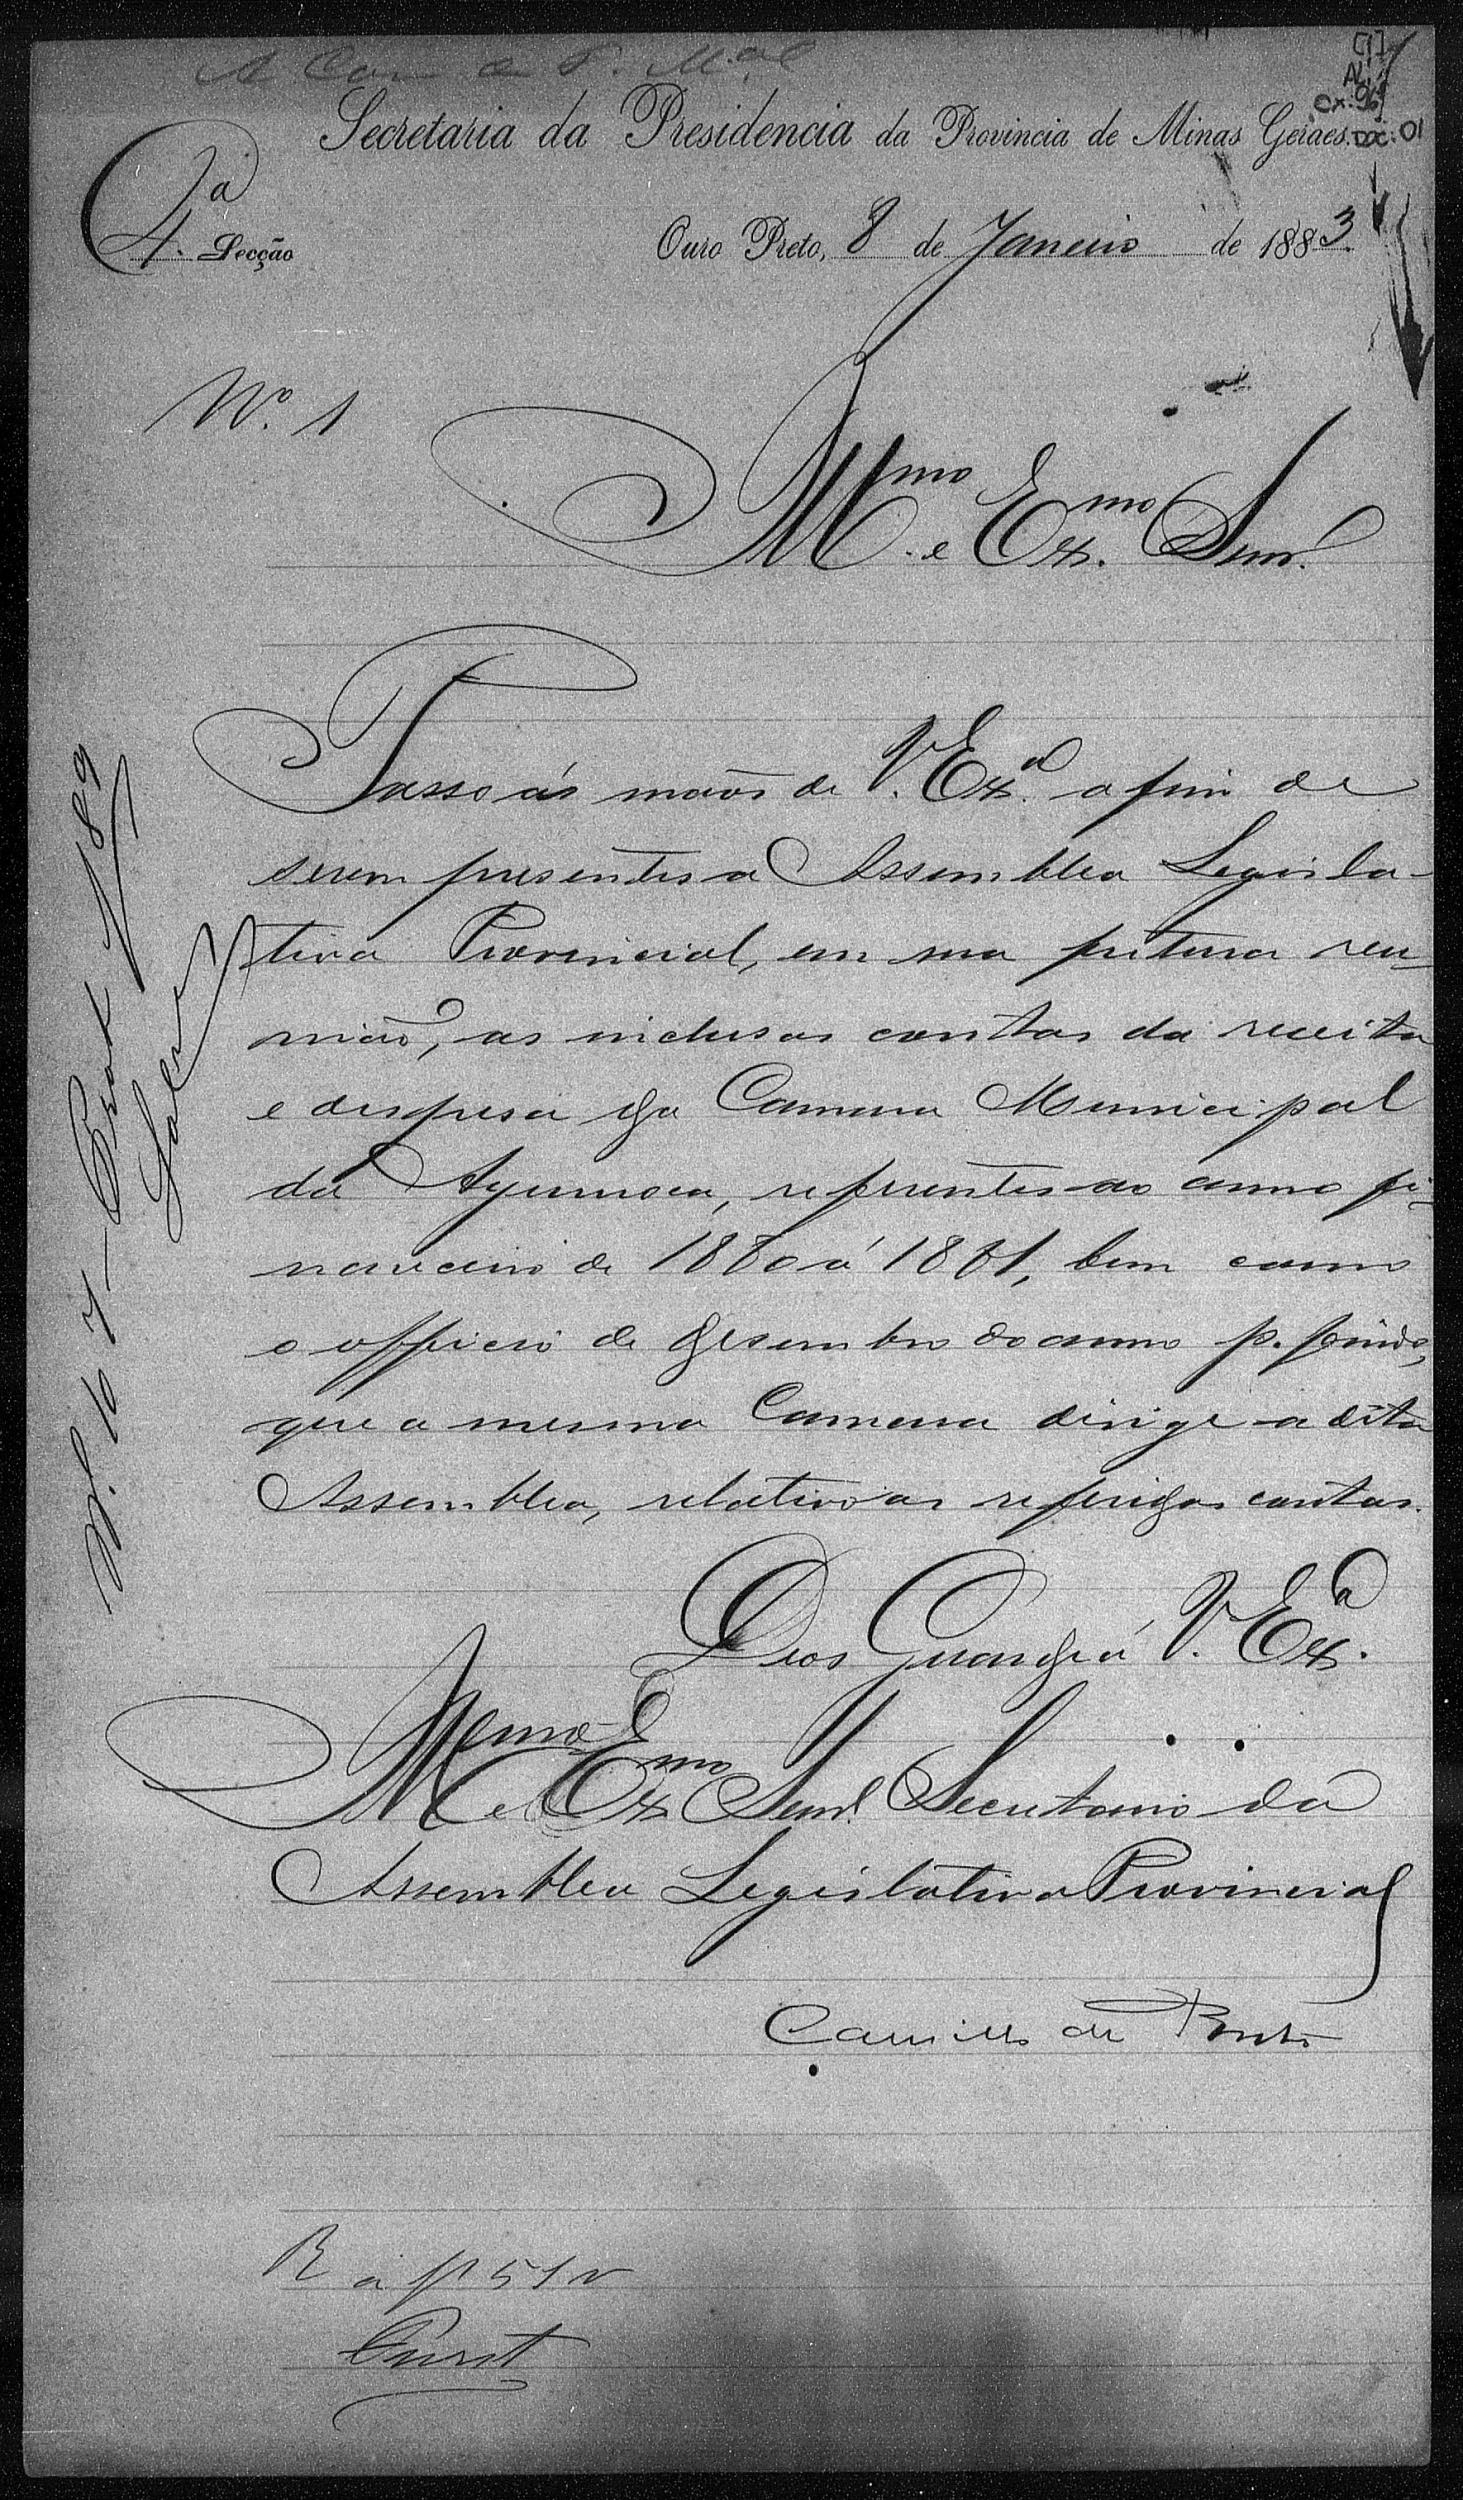 [1]
AL
cx. 96
DOC: 01
Secretaria da Presidencia da Provincia de Minas Geraes.
4.ª Secção
Ouro Preto, 8 de Janeiro de 1883.
Nº. 1
Illmo. e Exmo. Senr.
Passo ás mãos de V. Exª. a fim de
serem presentes a Assemblea Legisla-
tiva Provincial, em sua futura reu-
nião, as inclusas contas da receita
e despesa da Camara Municipal
da Ayuruoca, referentes ao anno fi-
nanceiro de 1880 á 1881, bem como
o officio de Desembro do anno p. findo,
que a mesma Camara dirige a dita
Assemblea, relativo as referidas contas.
Deos Guarde á V. Exª.
Illmo. e Exmo. Senr. Secretario da
Assemblea Legislativa Provincial
Camillo de Britto
R a f 51 v